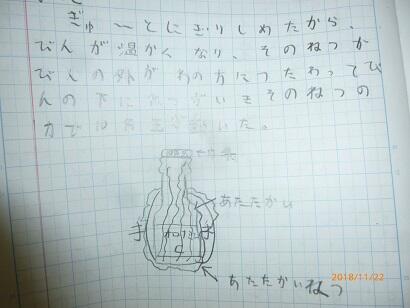 ぎゅ〜とにぎりしめたから、
びんが温かくなり、そのねつが
びんの外がわの方につたわってび
んの下に いきそのねつの
力で いた。
あたたかい
手
手
あたたかいねつ
2018/11/22